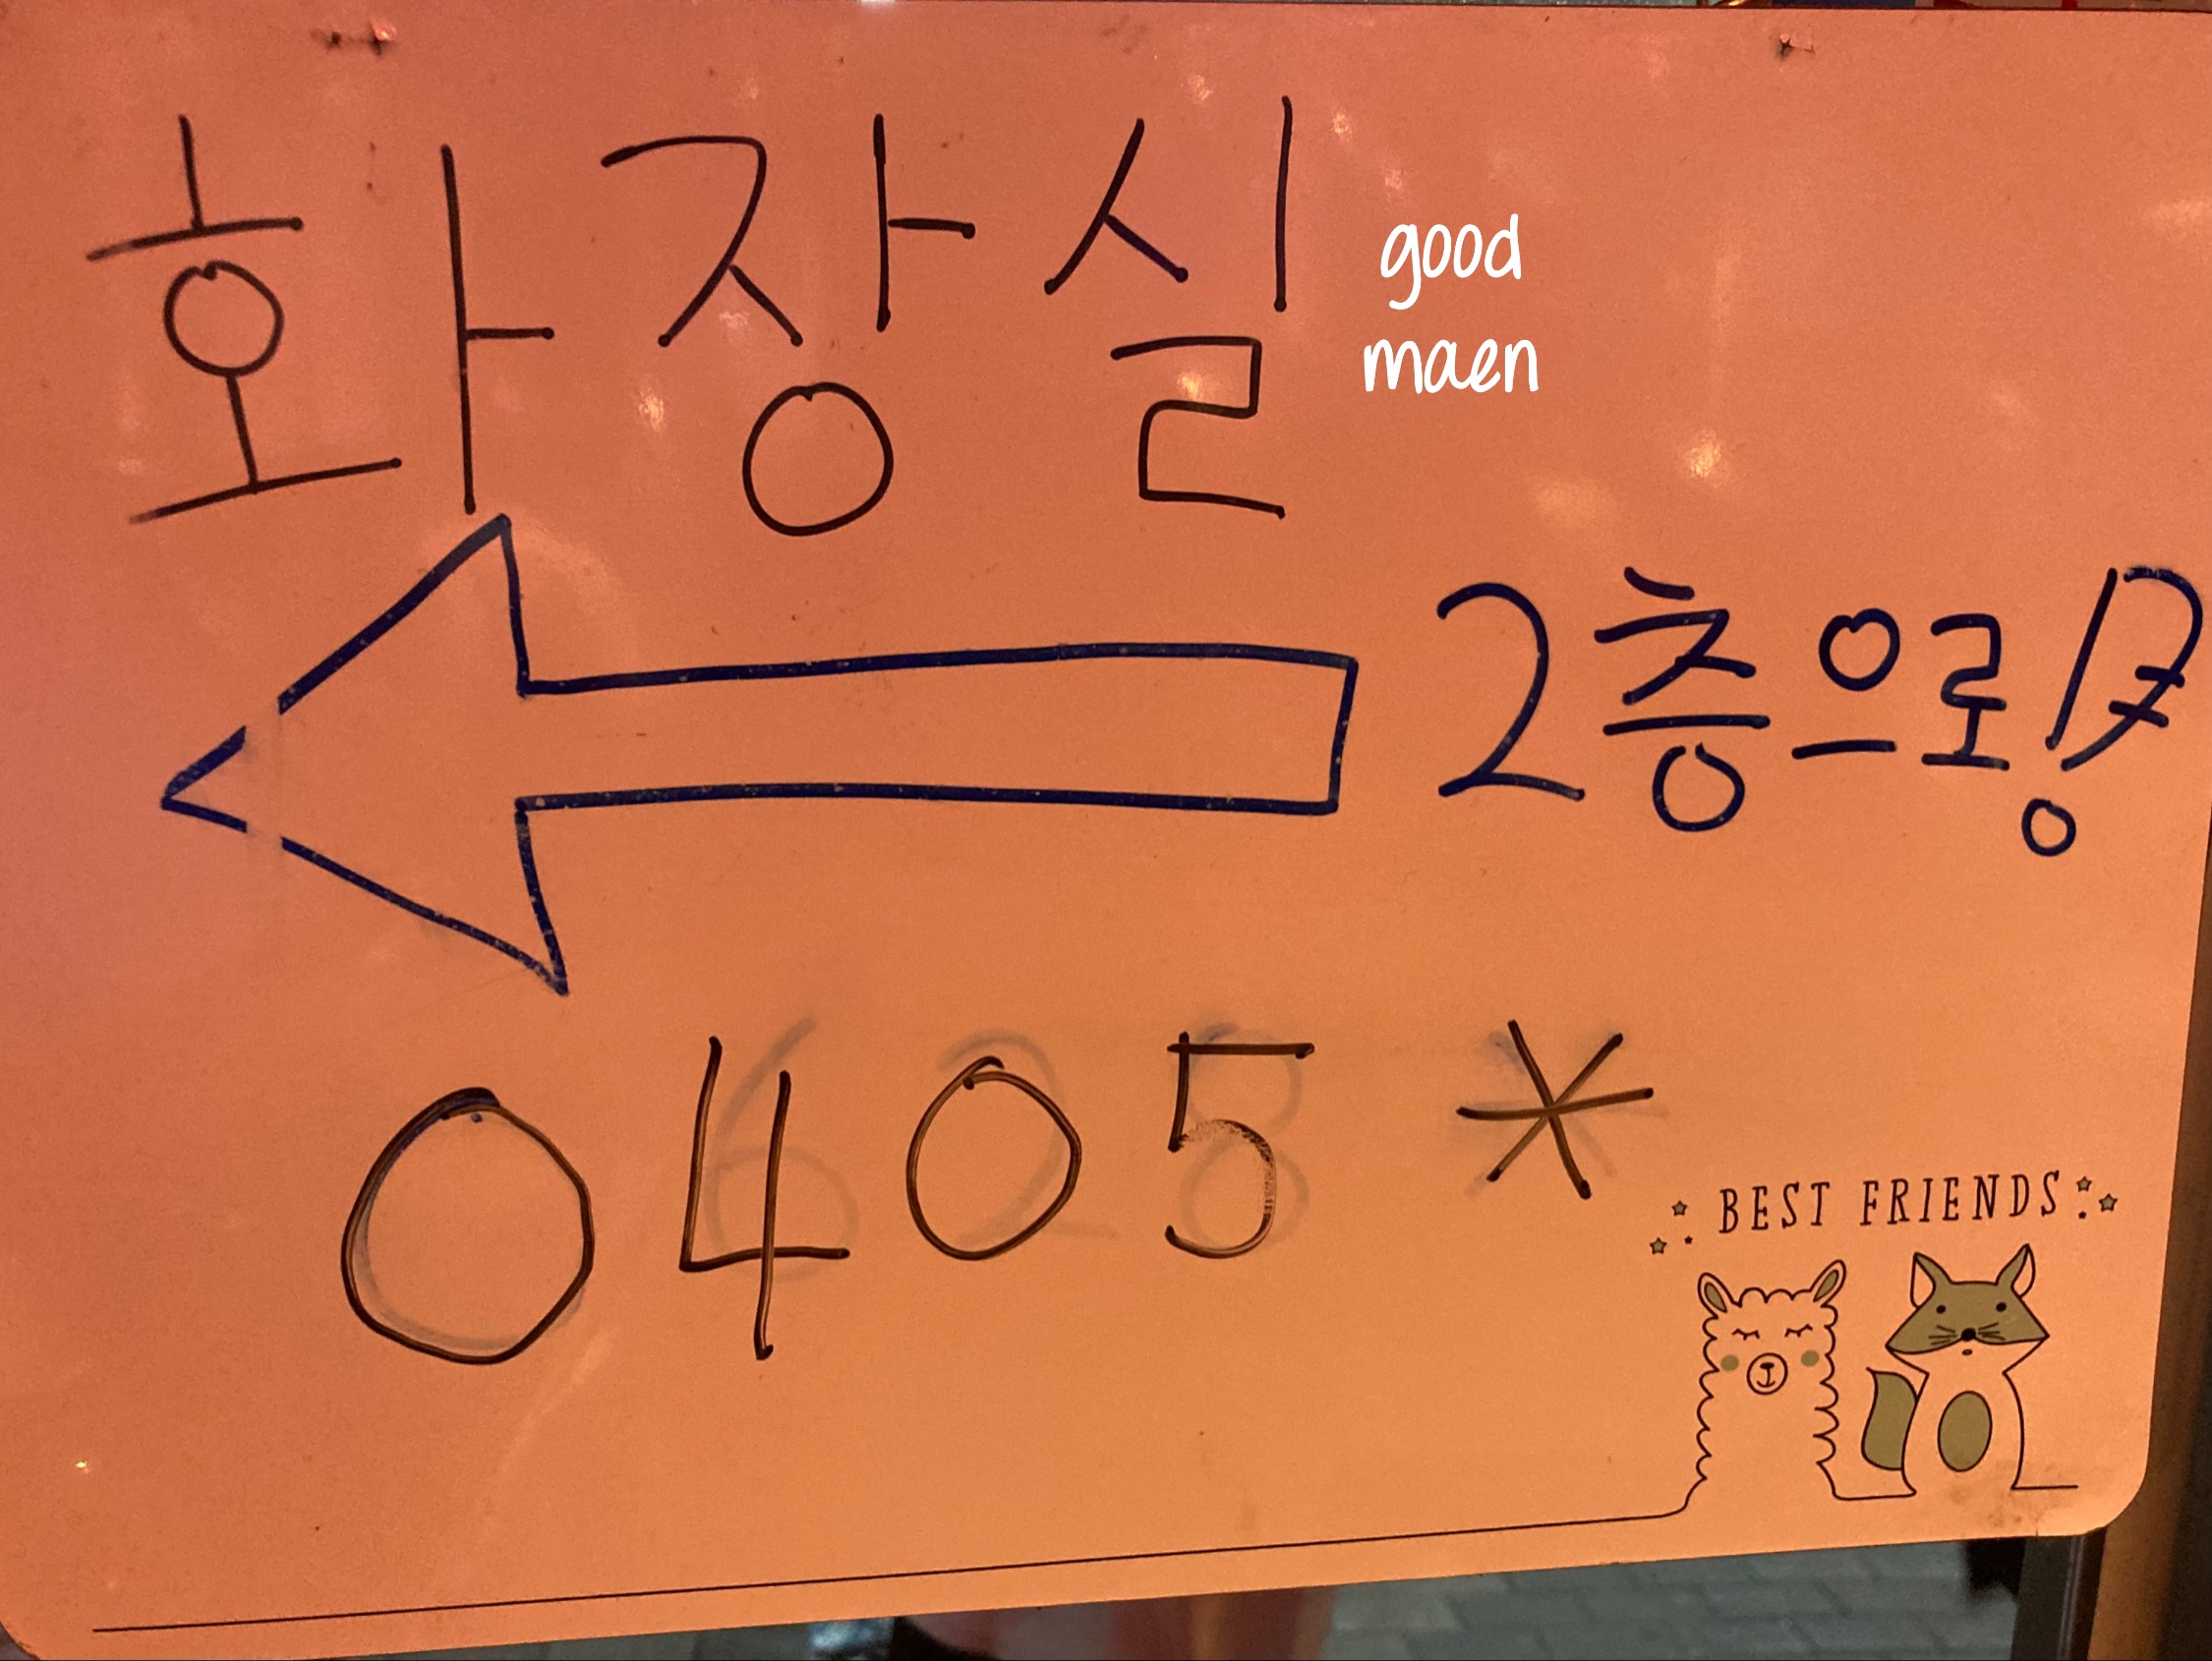 화장실
good
maen
2층으로!
0405*
BEST FRIENDS